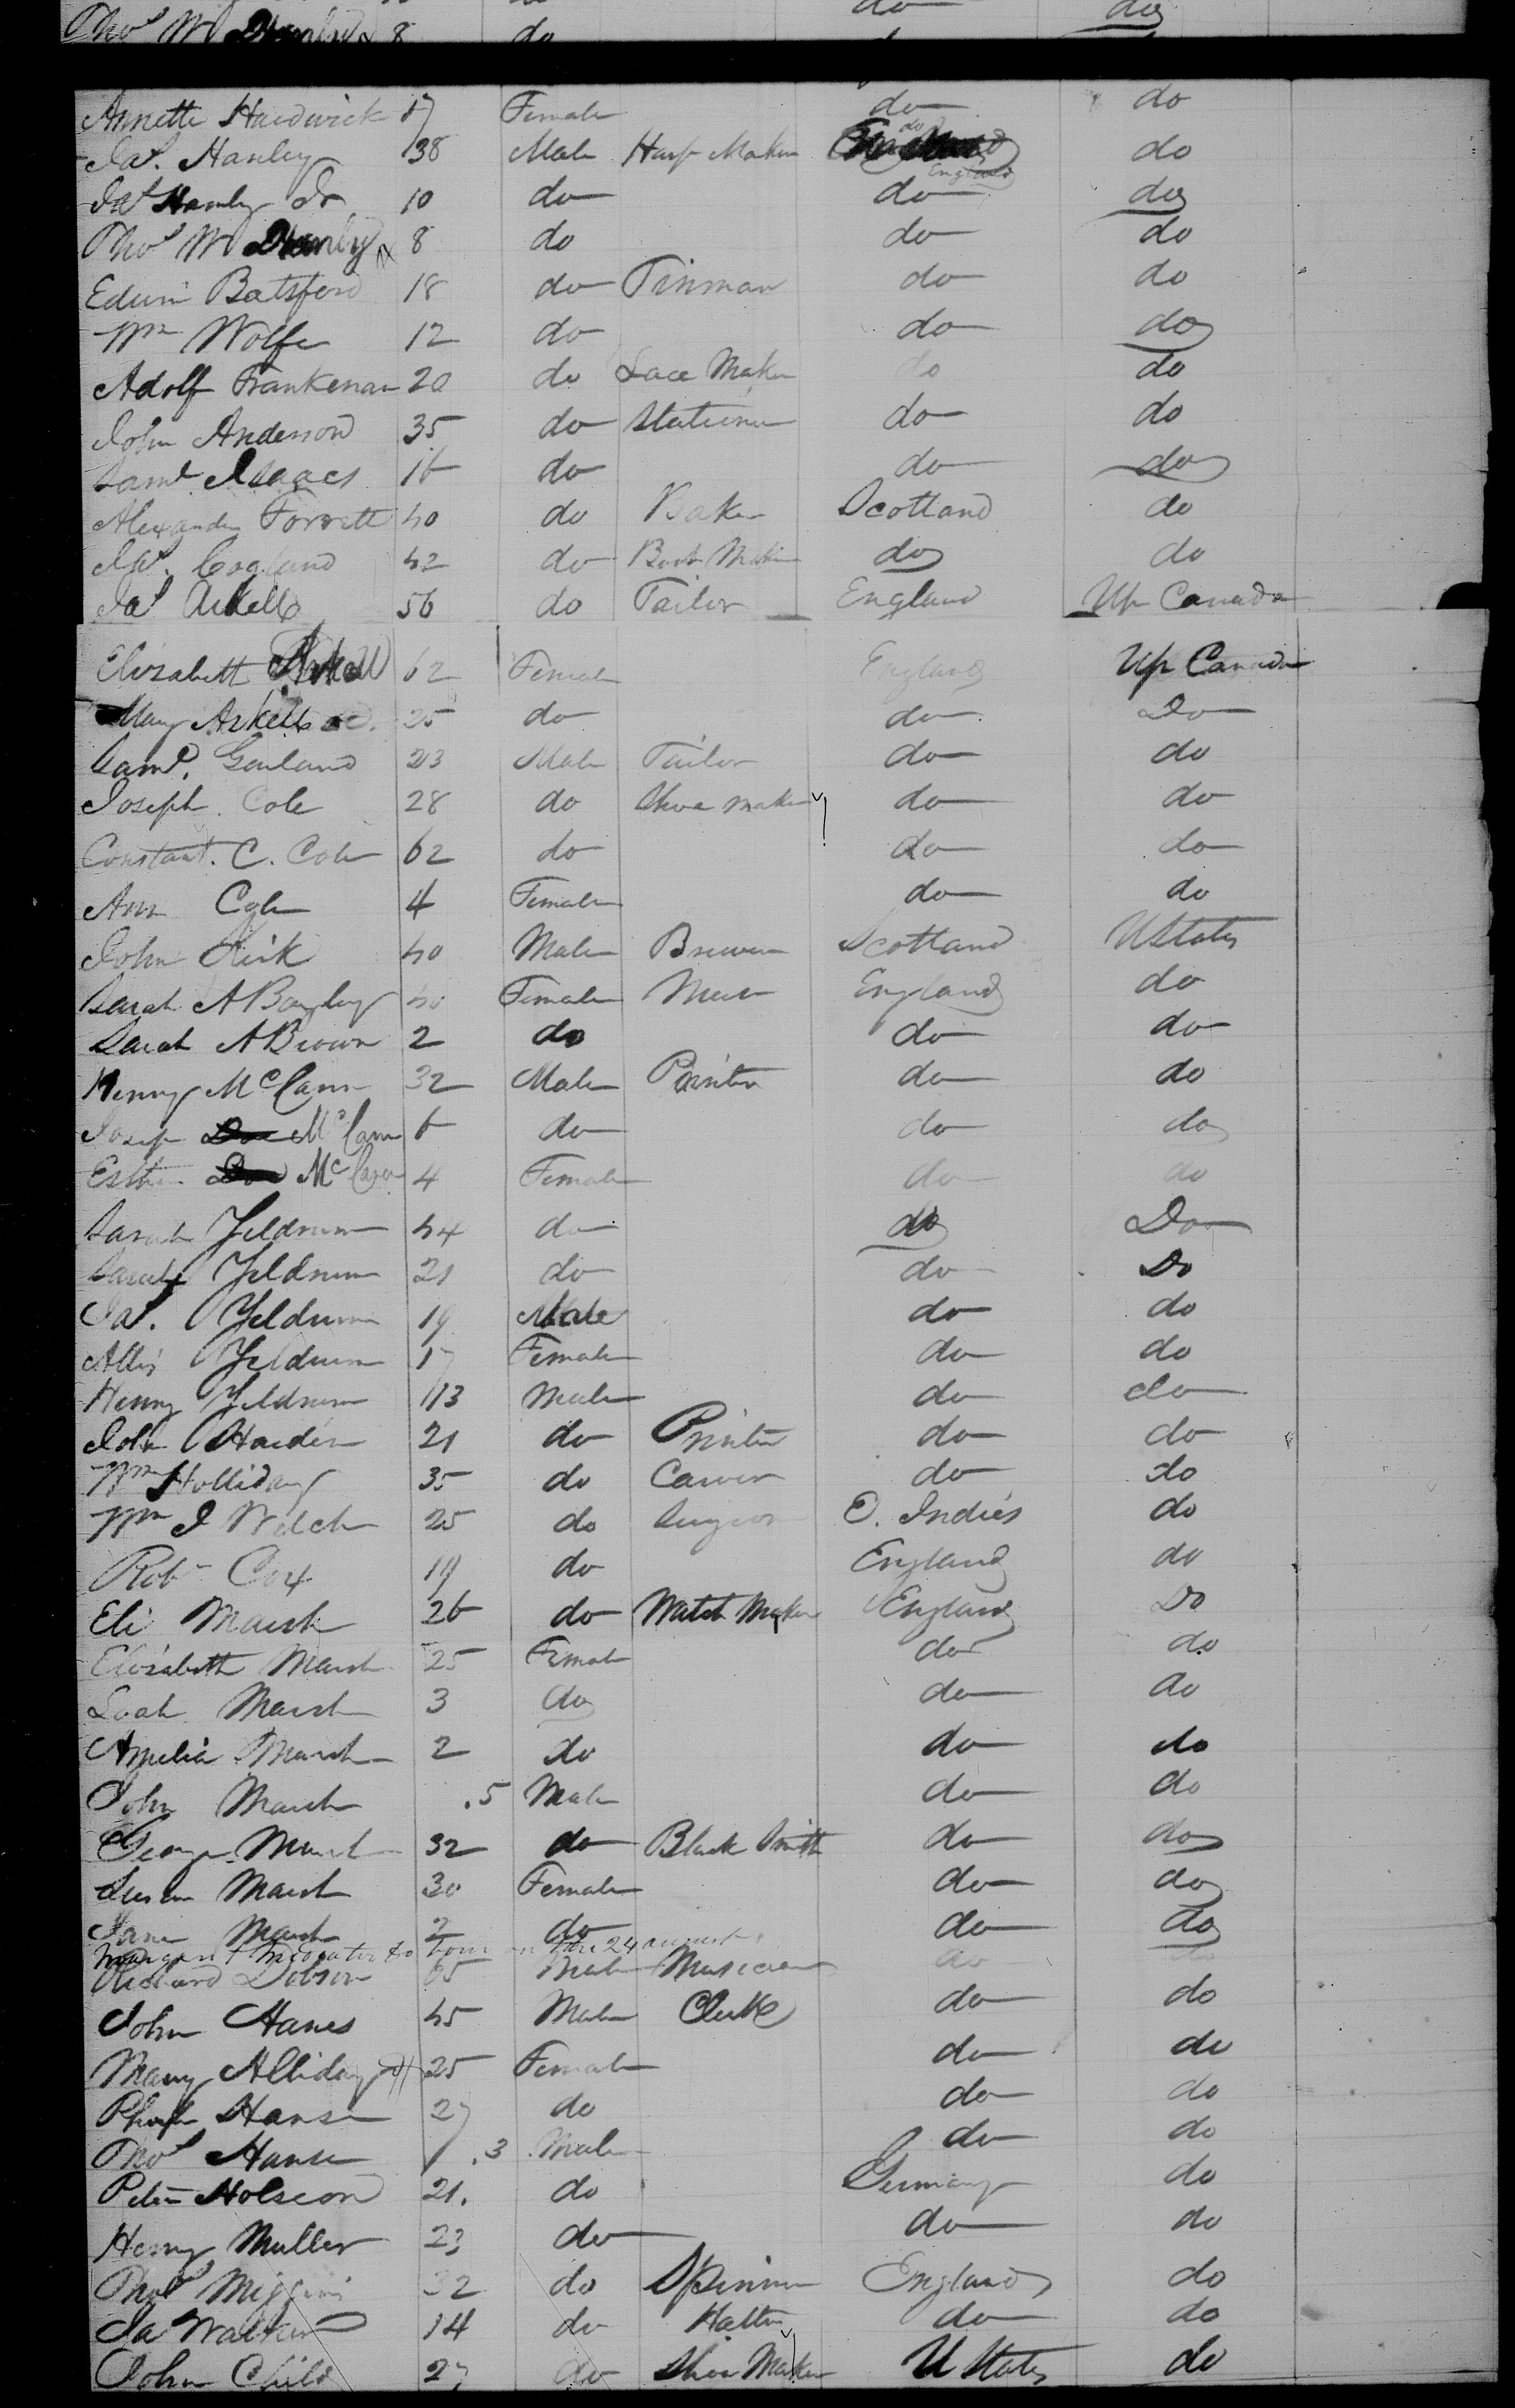 Thos W Hanley 8 do do do
Annette Hardwick 17 Female do do
Jas. Hanley 38 Male Harp Maker do England do
Jas Hanley Jr 10 do do do
Thos W Hanley 8 do do do
Edwin Batsford 18 do Tinman do do
Wm Wolfe 12 do do do
Adolf Frankenau 20 do Lace Maker do do
John Anderson 35 do Stationer do do
Saml Isaacs 16 do do do
Alexander Forrett 40 do Baker Scotland do
Jas. Cogland 42 do Boot Maker do do
Jas Arkell 56 do Tailor England Up Canada
Elizabeth Arkell 62 Female England Up Canada
Mary Arkell 25 do do Do
Saml. Garland 23 Male Tailor do do
Joseph Cole 28 do Shoe maker do do
Constant. C. Cole 62 do do do
Ann Cole 4 Female do do
John Kirk 40 Male Brewer Scotland U States
Sarah A Bayley 40 Female England do
Sarah A Brown 2 do do do
Henry McCann 32 Male Painter do do
Josep McCann 6 do do do
Esther McCann 4 Female do do
Sarah Yeldrum 44 do do Do
Sarah Yeldrum 21 do do Do
Jas. Yeldrum 19 Male do do
Allis Yeldrum 17 Female do do
Henry Yeldrum 13 Male do do
John Harden 21 do Printer do do
Wm Holliday 35 do Carver do do
Wm J Welch 25 do Surgeon E. Indies do
Robt Cox 19 do England do
Eli Marsh 26 do Watch Maker England Do
Elizabeth Marsh 25 Female do do
Leah Marsh 3 do do do
Amelia Marsh 2 do do do
John Marsh .5 Male do do
George Marsh 32 do Black Smith do do
Susan Marsh 30 Female do do
Jane Marsh 2 do do do
Margaret born on the 24 august
Richard Dobson 65 Male Musician do do
John Hanes 45 Male Clerk do do
Mary Alliday 25 Female do do
Hansen 27 do do do
Thos Hansen .3 Male do do
Peter Holscon 21. do Germany do
Henry Muller 23 do do do
Thos Miggins 32 do Spinner England do
Jas Walker 14 do Hatter do do
John Child 27 do Shoe Maker U States do